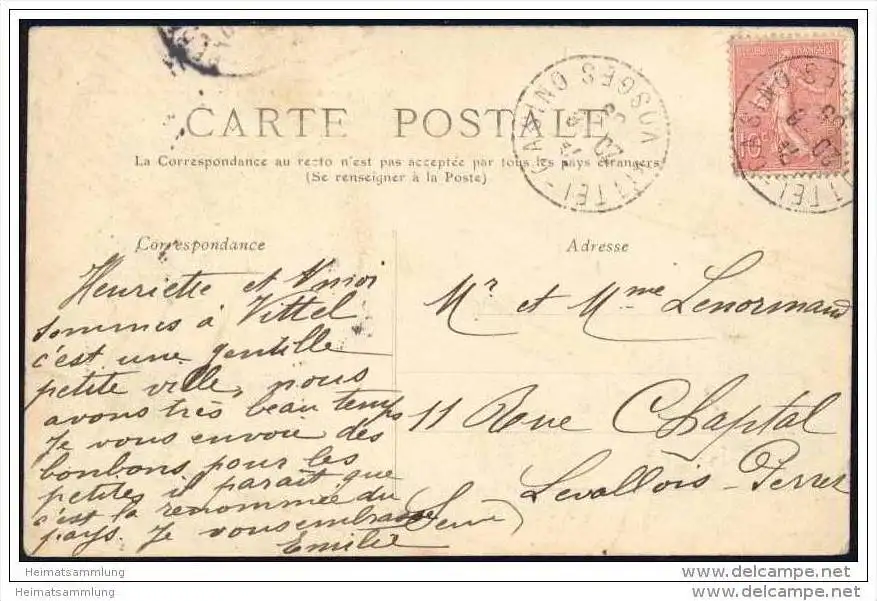 CARTE POSTALE
La Correspondance au recto n'est pas acceptée par tous les pays étrangers
(Se renseigner à la Poste)
Correspondance
Adresse
REPUBLIQUE FRANÇAISE
10c
VITTEL-CASINO VOSGES
Henriette et moi
sommes à Vittel
c'est une gentille
petite ville, nous
avons très beau temps
Je vous envoie des
bonbons pour les
petites il parait que
c'est la renommée du
pays. Je vous embrasse
Emilie
Mr et Mme Lenormand
11 Rue Chaptal
Levallois-Perret
Seine
Heimatsammlung
Heimatsammlung
www.delcampe.net
www.delcampe.net